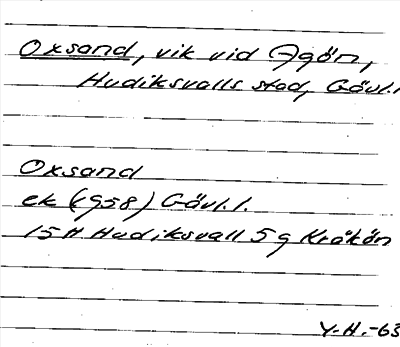 Oxsand, vik vid Agön,
Hudiksvalls stad, Gävl.l
Oxsand
ek (1958) Gävl.l.
15H Hudiksvall 5g Kråkön
Y.H.-63